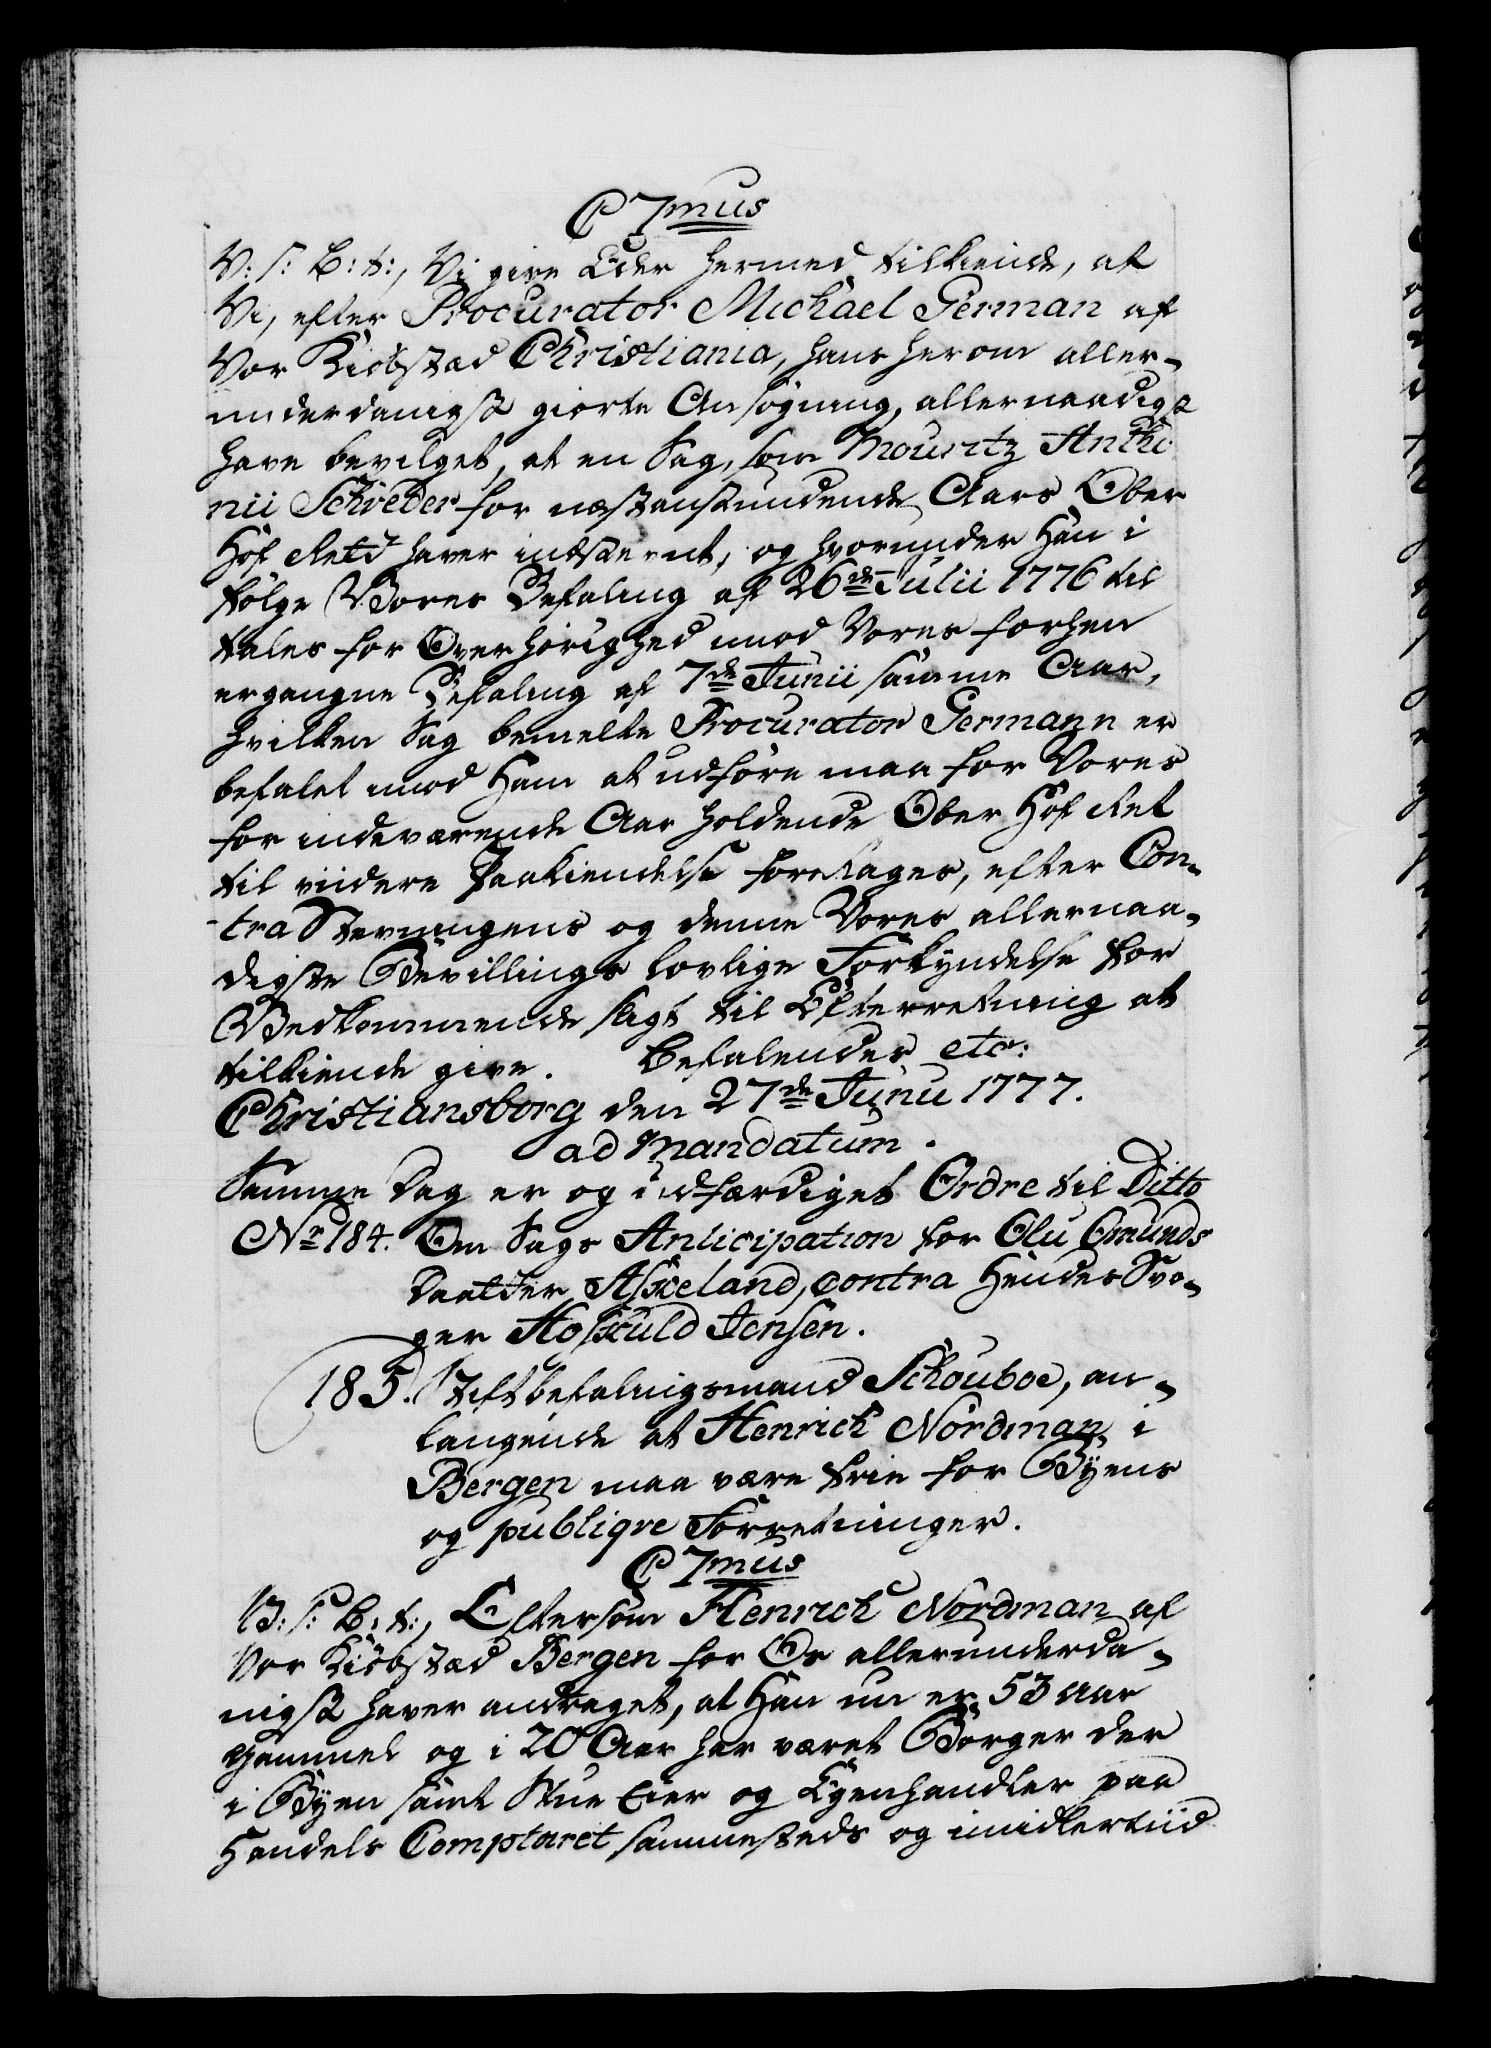 C 7mus
V: S: B: t:, Vi give Eder hermed tilkiende, at
Vi, efter Procurator Michael German af
Vor Kiöbstæd Christiania, hans herom aller-
underdanigst giorte Ansøgning, allernaadigst
have bevilget, at en Sag, som Mouritz Antho
nii Schrøder for næstanstundende Aars Ober
Hof Rett haver indstevnt, og hvorunder Han i
følge Vores Befaling af 26de Julii 1776 til
tales for Overhörighed imod Vores forhen
ergangne Befaling af 7de Junii samme Aar,
hvilken Sag bemelte Procurator Germann er
befalet imod Ham at udføre maa for Vores
for indeværende Aar holdende Ober Hof Ret
til viidere Paakiendelse foretages, efter Con-
tra Stevningens og denne Vores allernaa-
digste Bevillings lovlige Forkyndelse for
Vedkommende sligt til Efterretning at
tilkiende give. Befalendes etc:
Christiansborg den 27de Junii 1777.
ad Mandatum.
Samme Dag er og udfærdiget Ordre til Ditto
No 184. Om Sags Anticipation for Olu Omunds
Daatter Asseland, contra Hendes Svo-
ger Hoskuld Jensen.
185. Stiftbefalingsmand Schouboe, an-
langende at Henrich Nordman i
Bergen maa være frie for Byens
og publique Forretninger.
C 7mus
V: S: B: t:, Eftersom Henrich Nordman af
Vor Kiöbstæd Bergen for Os allerunderda-
nigst haver andraget, at Han nu er 53 Aar
gammel og i 20 Aar har været Borger der
i Byen samt Stue Eier og Egenhandler paa
Handels Comptoret sammesteds og imidlertiid